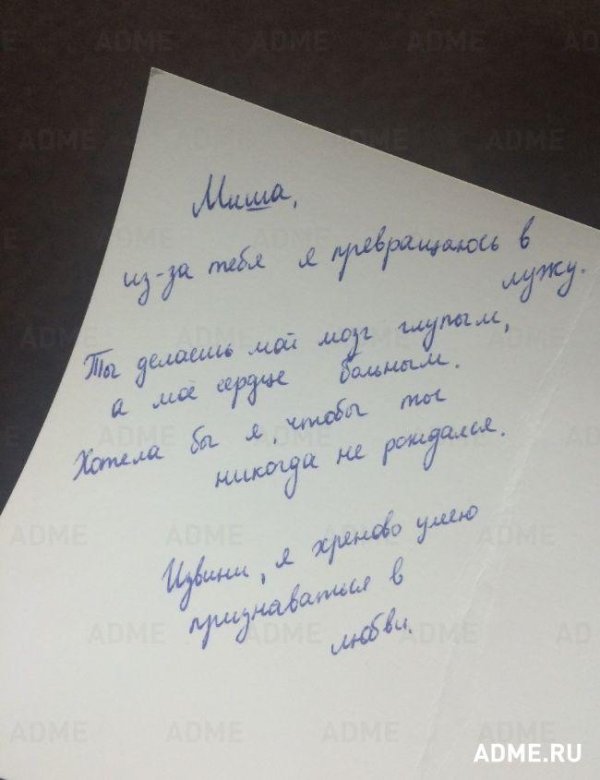 Миша,
из-за тебя я превращаюсь в
лужу.
Ты делаешь мой мозг глупым,
а моё сердце больным.
Хотела бы я, чтобы ты
никогда не рождался.
Извини, я хреново умею
признаваться в
любви.
ADME.RU